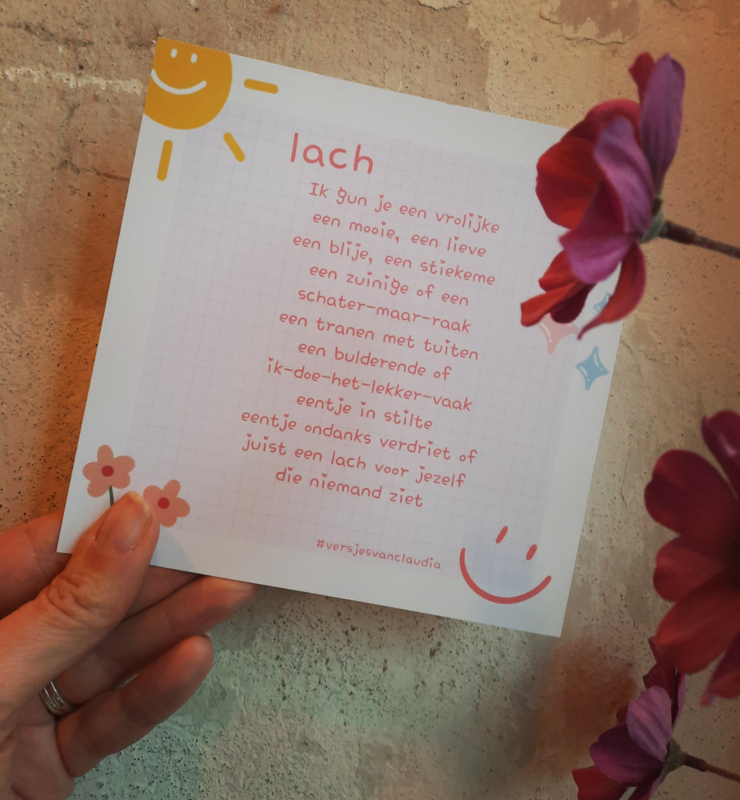 lach
Ik gun je een vrolijke
een mooie, een lieve
een blije, een stiekeme
een zuinige of een
schater-maar-raak
een tranen met tuiten
een bulderende of
ik-doe-het-lekker-vaak
eentje in stilte
eentje ondanks verdriet of
juist een lach voor jezelf
die niemand ziet
#versjesvanclaudia